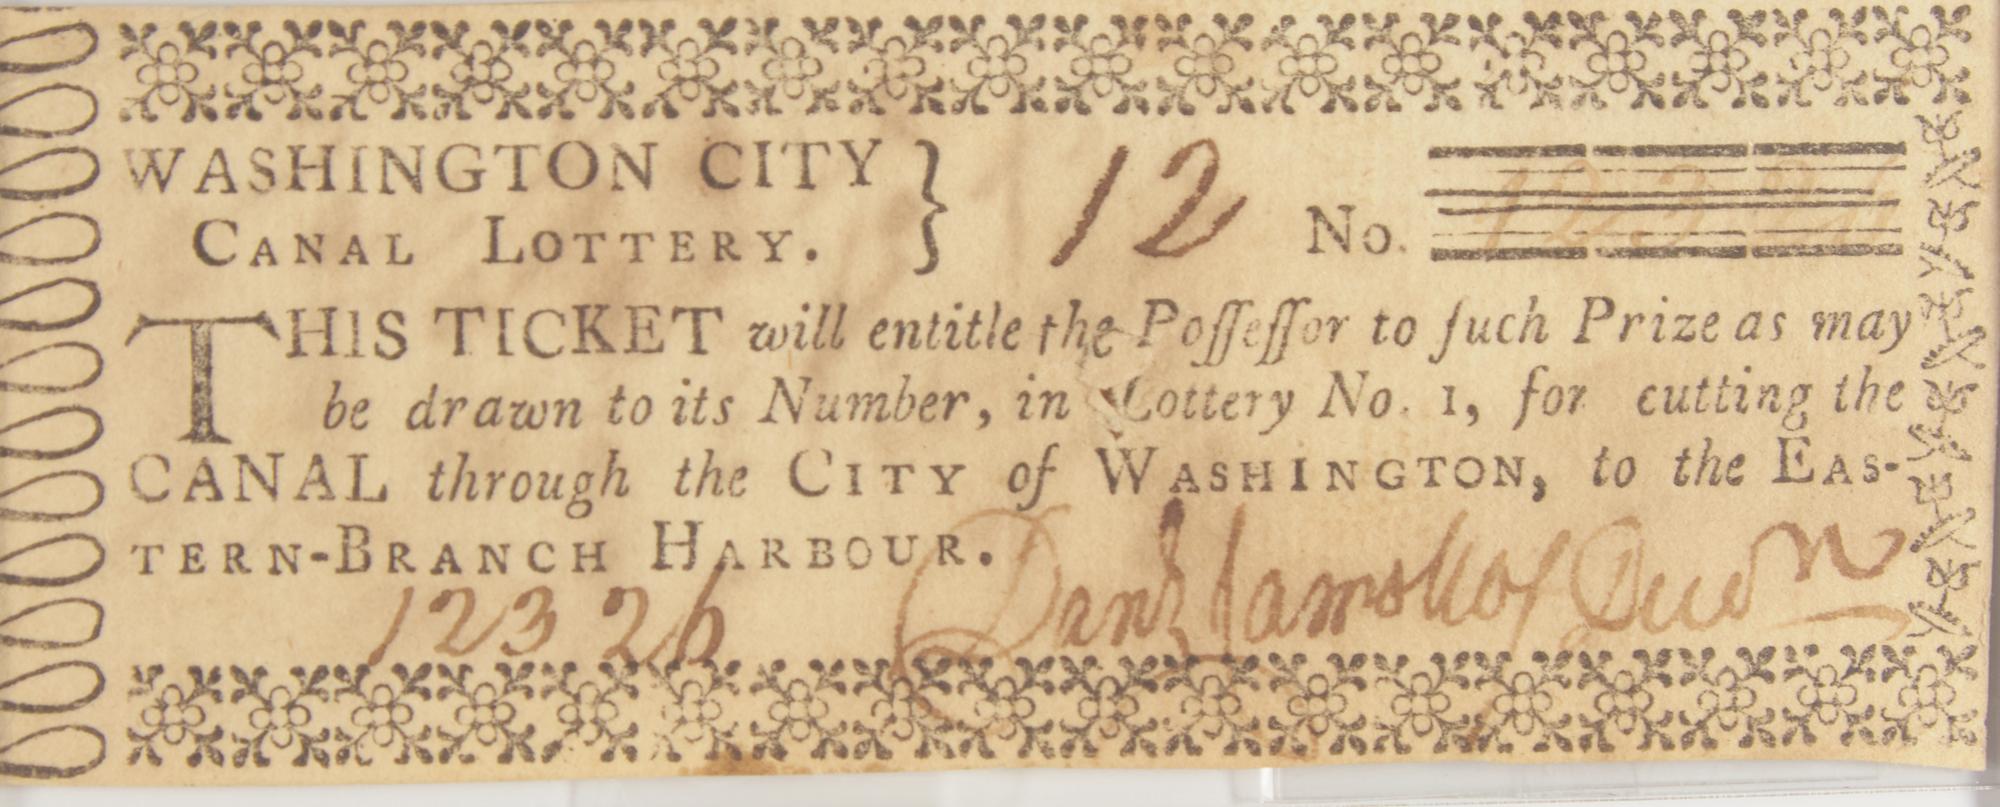 WASHINGTON CITY } 12 No.
CANAL LOTTERY.
THIS TICKET will entitle the Poſſeſſor to ſuch Prize as may
be drawn to its Number, in Lottery No. 1, for cutting the
CANAL through the CITY of WASHINGTON, to the EAS-
TERN-BRANCH HARBOUR.
12326 Danl